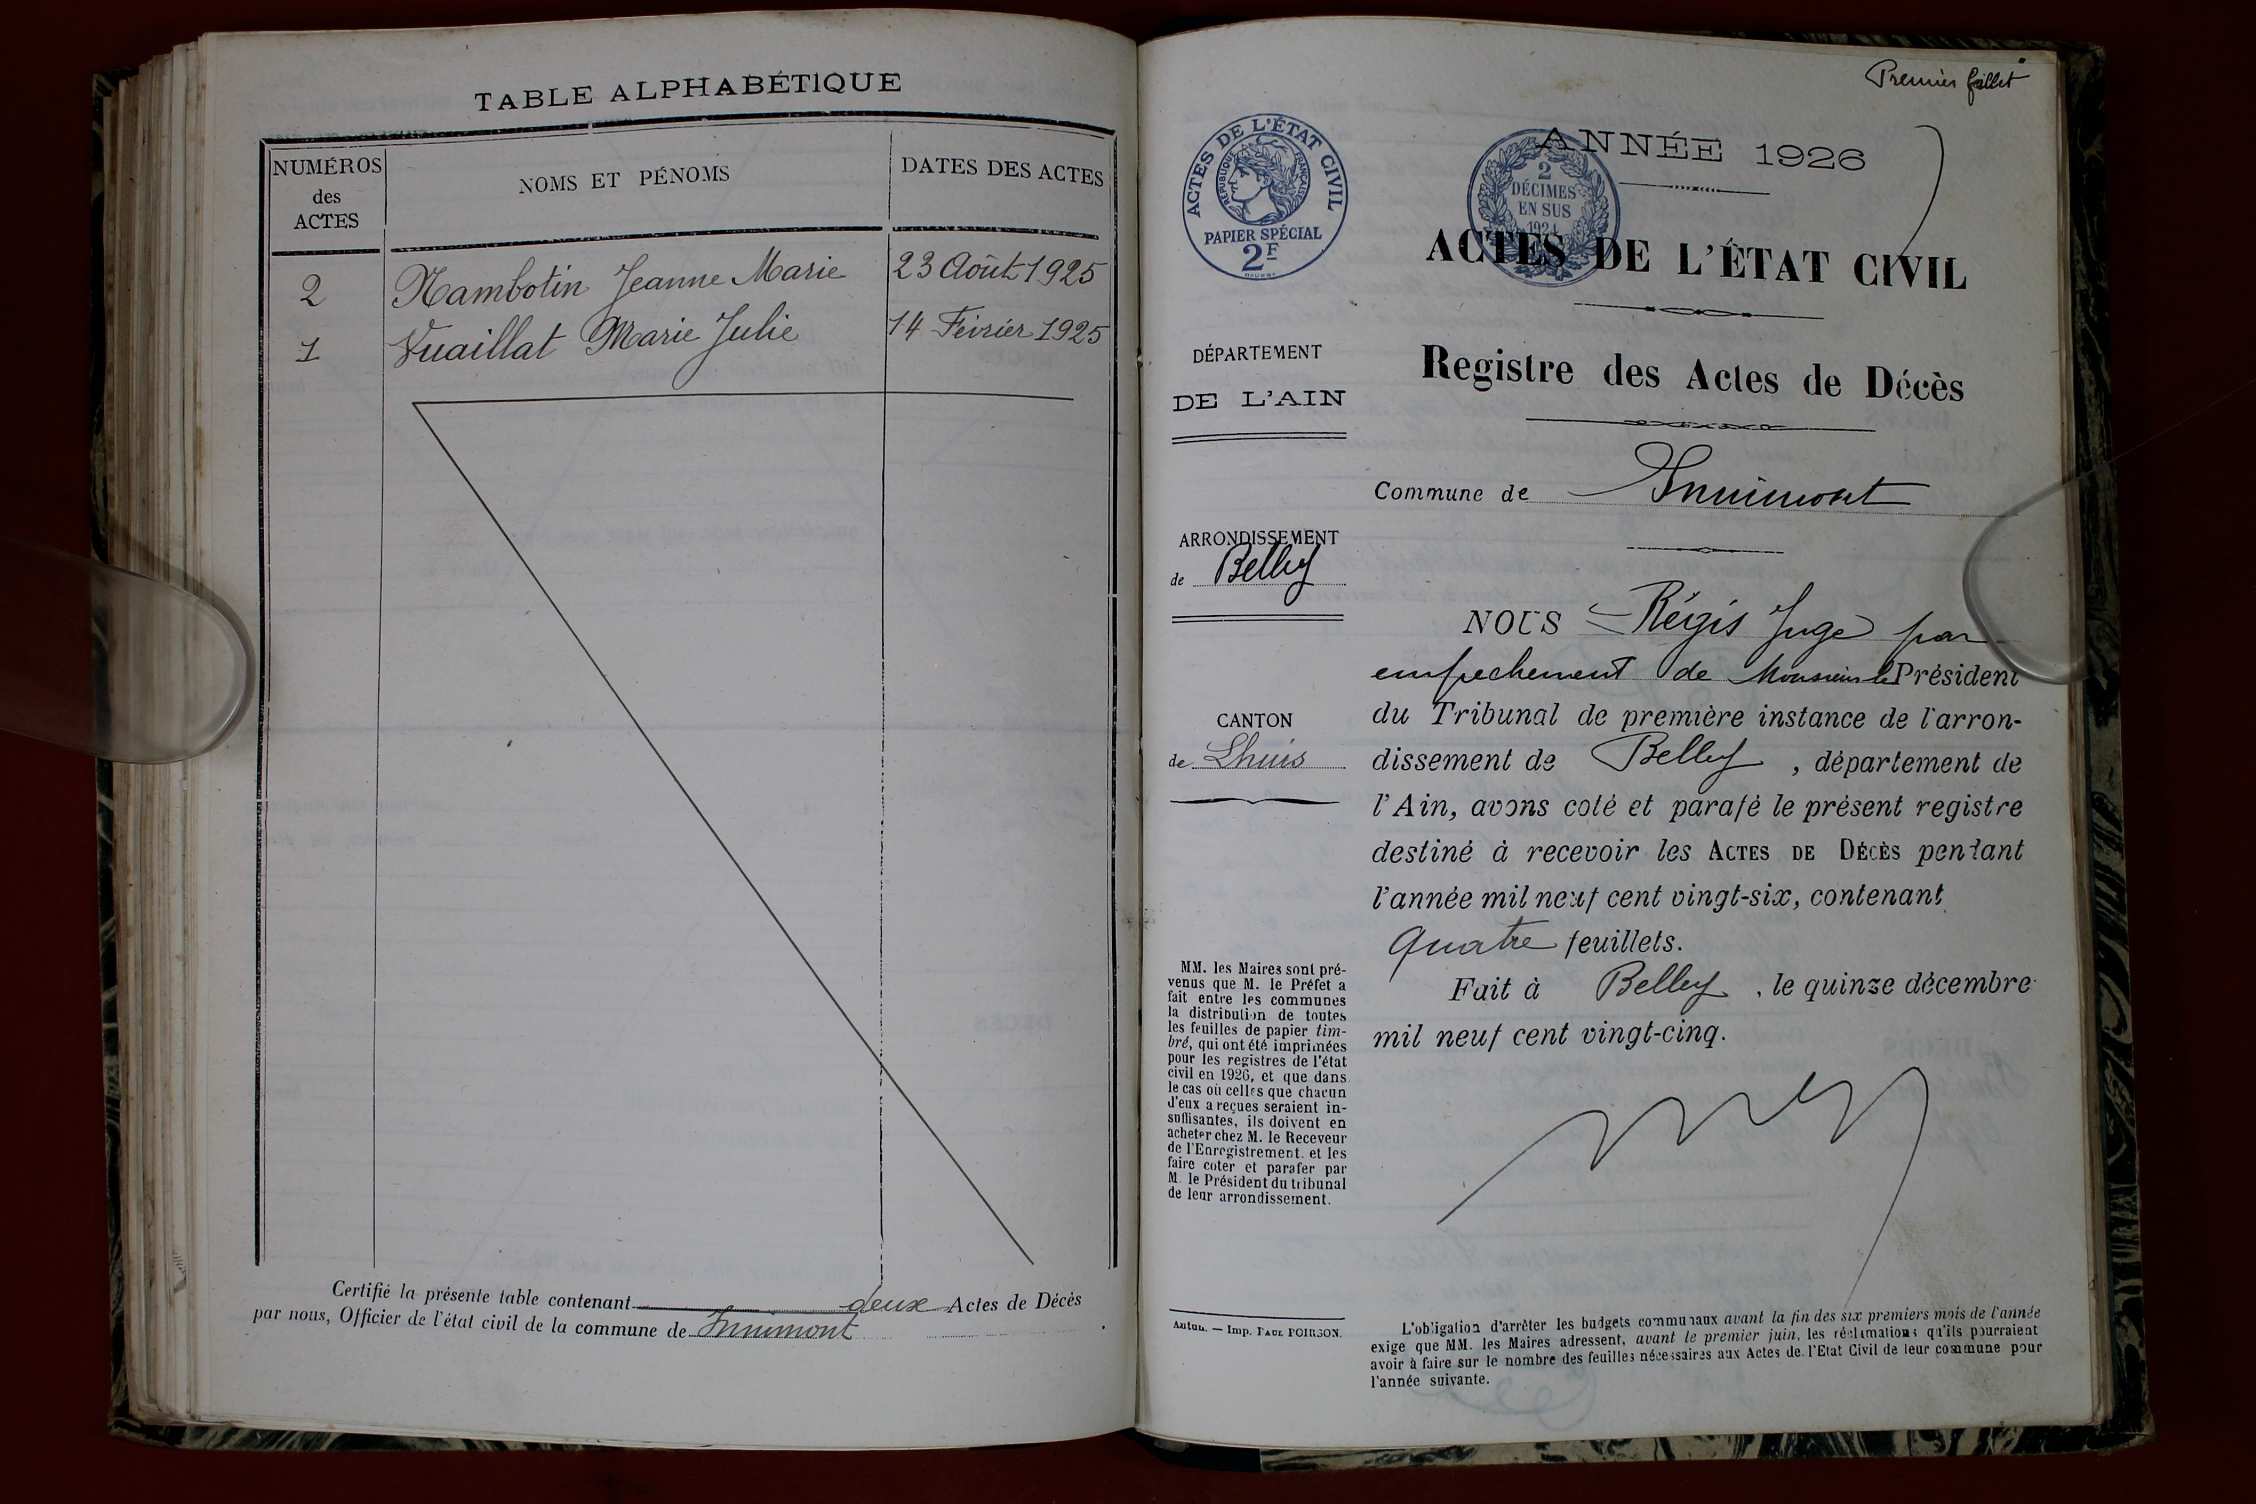 TABLE ALPHABÉTIQUE
NUMÉROS
des
ACTES
NOMS ET PÉNOMS
DATES DES ACTES
2 Nambotin Jeanne Marie 23 Août 1925
1 Vuaillat Marie Julie 14 Février 1925
Certifié la présente table contenant deux Actes de Décès
par nous, Officier de l'état civil de la commune de Innimont
Premier feuillet
ACTES DE L'ÉTAT CIVIL
RÉPUBLIQUE FRANÇAISE
PAPIER SPÉCIAL
2F
2
DÉCIMES
EN SUS
1924
ANNÉE 1926
ACTES DE L'ÉTAT CIVIL
Registre des Actes de Décès
DÉPARTEMENT
DE L'AIN
Commune de Innimont
ARRONDISSEMENT
de Belley
CANTON
de Lhuis
NOUS Régis Juge par
empechement de Monsieur le Président
du Tribunal de première instance de l'arron-
dissement de Belley, département de
l'Ain, avons coté et parafé le présent registre
destiné à recevoir les ACTES DE DÉCÈS pendant
l'année mil neuf cent vingt-six, contenant
quatre feuillets.
Fait à Belley, le quinze décembre
mil neuf cent vingt-cinq.
MM. les Maires sont pré-
venus que M. le Préfet a
fait entre les communes
la distribution de toutes
les feuilles de papier tim-
bré, qui ont été imprimées
pour les registres de l'état
civil en 1926, et que dans
le cas où celles que chacun
d'eux a reçues seraient in-
suffisantes, ils doivent en
acheter chez M. le Receveur
de l'Enregistrement. et les
faire coter et parafer par
M. le Président du tribunal
de leur arrondissement.
Autun. — Imp. PAUL POIRSON.
L'obligation d'arrêter les budgets communaux avant la fin des six premiers mois de l'année
exige que MM. les Maires adressent, avant le premier juin, les réclamations qu'ils pourraient
avoir à faire sur le nombre des feuilles nécessaires aux Actes de l'Etat Civil de leur commune pour
l'année suivante.